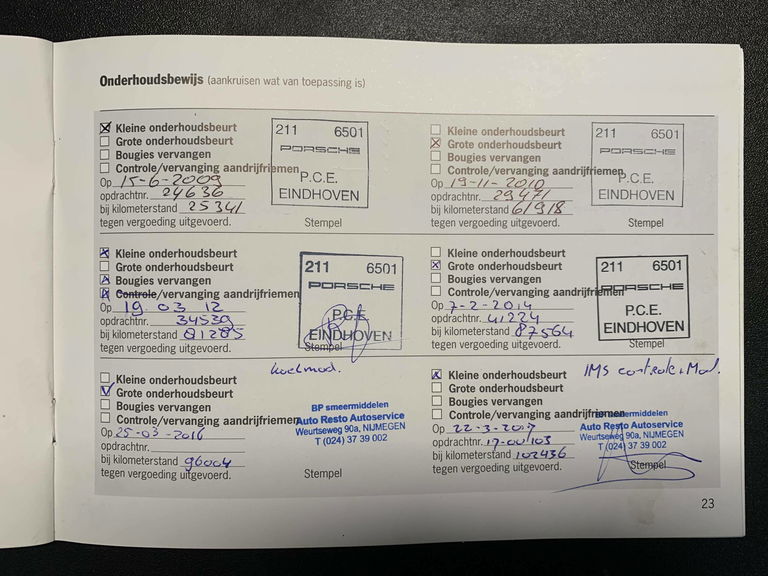 Onderhoudsbewijs (aankruisen wat van toepassing is)
Kleine onderhoudsbeurt
Grote onderhoudsbeurt
Bougies vervangen
Controle/vervanging aandrijfriemen
Op 15-6-2009
opdrachtnr. 24636
bij kilometerstand 25341
tegen vergoeding uitgevoerd.
211 6501
PORSCHE
P.C.E.
EINDHOVEN
Stempel
Kleine onderhoudsbeurt
Grote onderhoudsbeurt
Bougies vervangen
Controle/vervanging aandrijfriemen
Op 19-11-2010
opdrachtnr. 29471
bij kilometerstand 61918
tegen vergoeding uitgevoerd.
211 6501
PORSCHE
P.C.E.
EINDHOVEN
Stempel
Kleine onderhoudsbeurt
Grote onderhoudsbeurt
Bougies vervangen
Controle/vervanging aandrijfriemen
Op 19 03 12
opdrachtnr. 34539
bij kilometerstand 81285
tegen vergoeding uitgevoerd.
211 6501
PORSCHE
P.C.E.
EINDHOVEN
Stempel
Kleine onderhoudsbeurt
Grote onderhoudsbeurt
Bougies vervangen
Controle/vervanging aandrijfriemen
Op 7-2-2014
opdrachtnr. 41224
bij kilometerstand 87564
tegen vergoeding uitgevoerd.
211 6501
PORSCHE
P.C.E.
EINDHOVEN
Stempel
Kleine onderhoudsbeurt
Grote onderhoudsbeurt
Bougies vervangen
Controle/vervanging aandrijfriemen
Op 25-03-2016
opdrachtnr.
bij kilometerstand 96004
tegen vergoeding uitgevoerd.
BP smeermiddelen
Auto Resto Autoservice
Weurtseweg 90a, NIJMEGEN
T (024) 37 39 002
Stempel
IMS controle
Kleine onderhoudsbeurt
Grote onderhoudsbeurt
Bougies vervangen
Controle/vervanging aandrijfriemen
Op 22-3-2017
opdrachtnr. 17-00103
bij kilometerstand 102436
tegen vergoeding uitgevoerd.
smeermiddelen
Auto Resto Autoservice
Weurtseweg 90a, NIJMEGEN
T (024) 37 39 002
Stempel
23